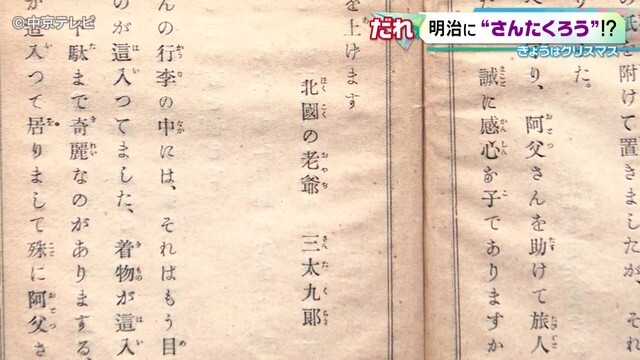 ©中京テレビ
だれ
明治に“さんたくろう”!?
きょうはクリスマス
附けて置きましたが、それ
た。
り、阿父さんを助けて旅人
誠に感心な子でありますか
を上げます
北國の老爺 三太九郎
んの行李の中には、それはもう目
のが這入つてました、着物が這入
駄まで奇麗なのがありまする、
が這入つて居りまして殊に阿父さ